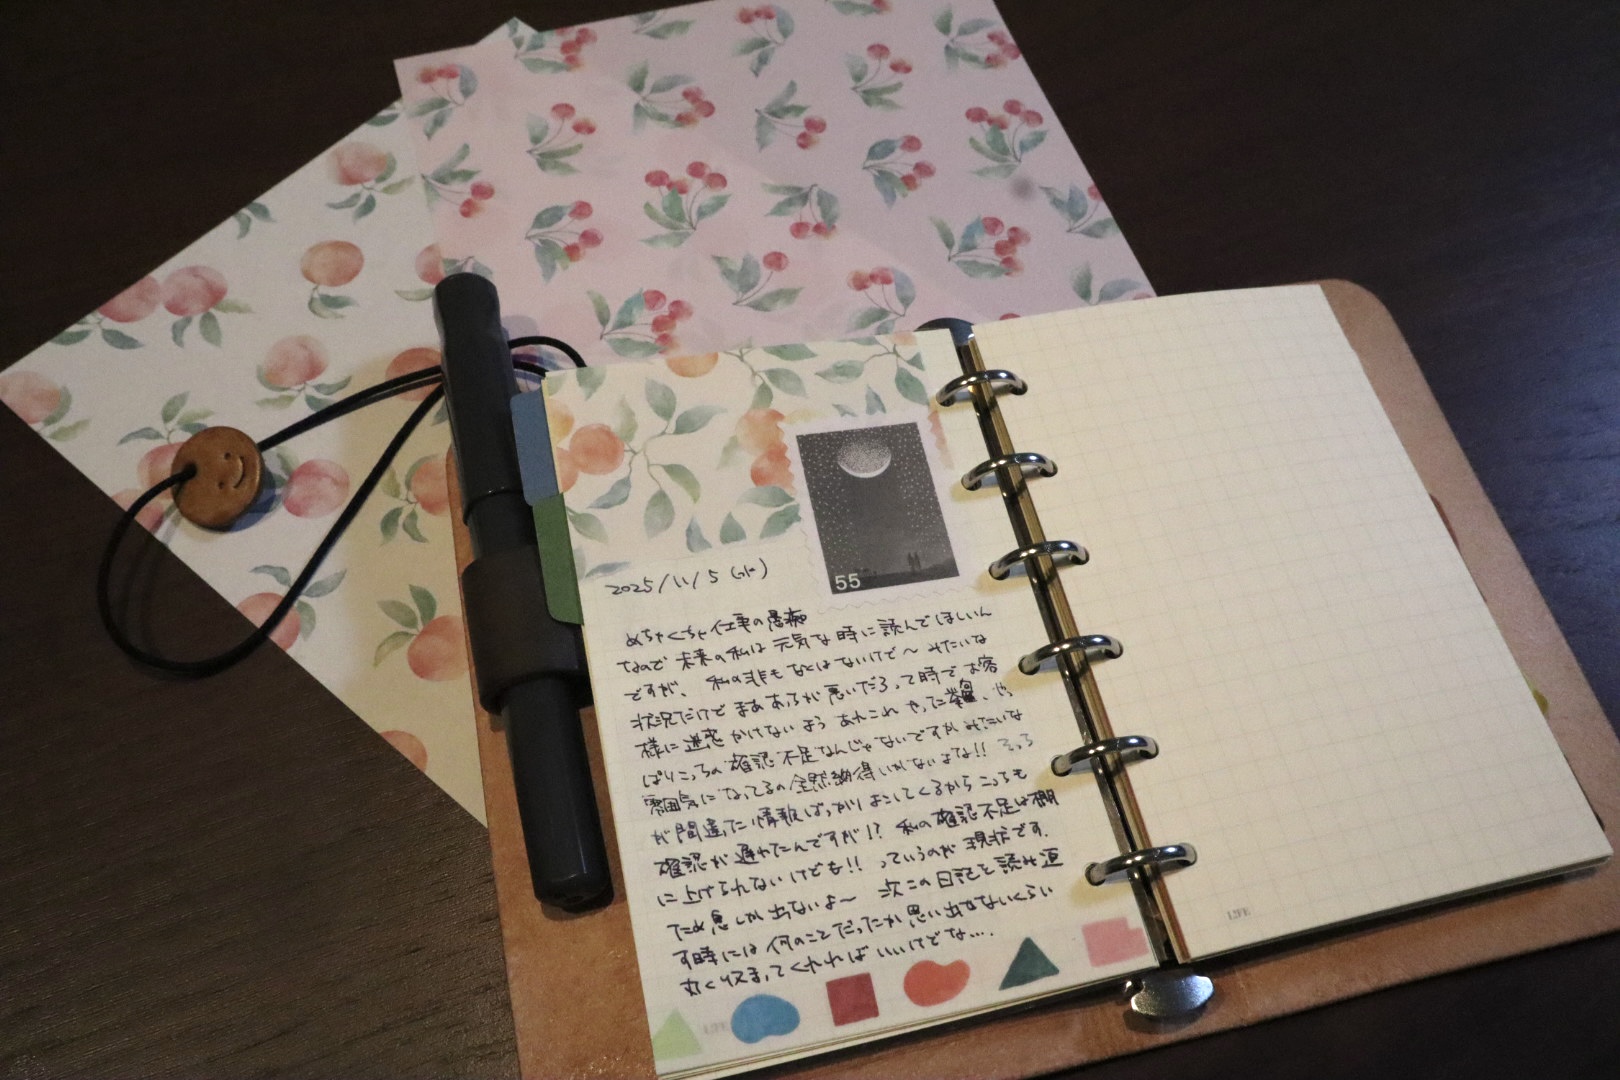 55
2025/11/5(水)
めちゃくちゃ仕事の愚痴
なので未来の私は元気な時に読んでほしいん
ですが、私の非もなくはないけど〜みたいな
状況だけどまああっちが悪いだろって時でお客
様に迷惑かけないようあれこれやった結果、やっ
ぱりこっちの確認不足なんじゃないですかみたいな
雰囲気になってるの全然納得いかないよな!! そっち
が間違った情報ばっかりよこしてくるからこっちも
確認が遅れたんですが!? 私の確認不足は棚
に上げられないけども!! っていうのが現状です。
ため息しか出ないよ〜 次この日記を読み返
す時には何のことだったか思い出せないくらい
丸く収まってくれればいいけどな…。
LIFE
LIFE